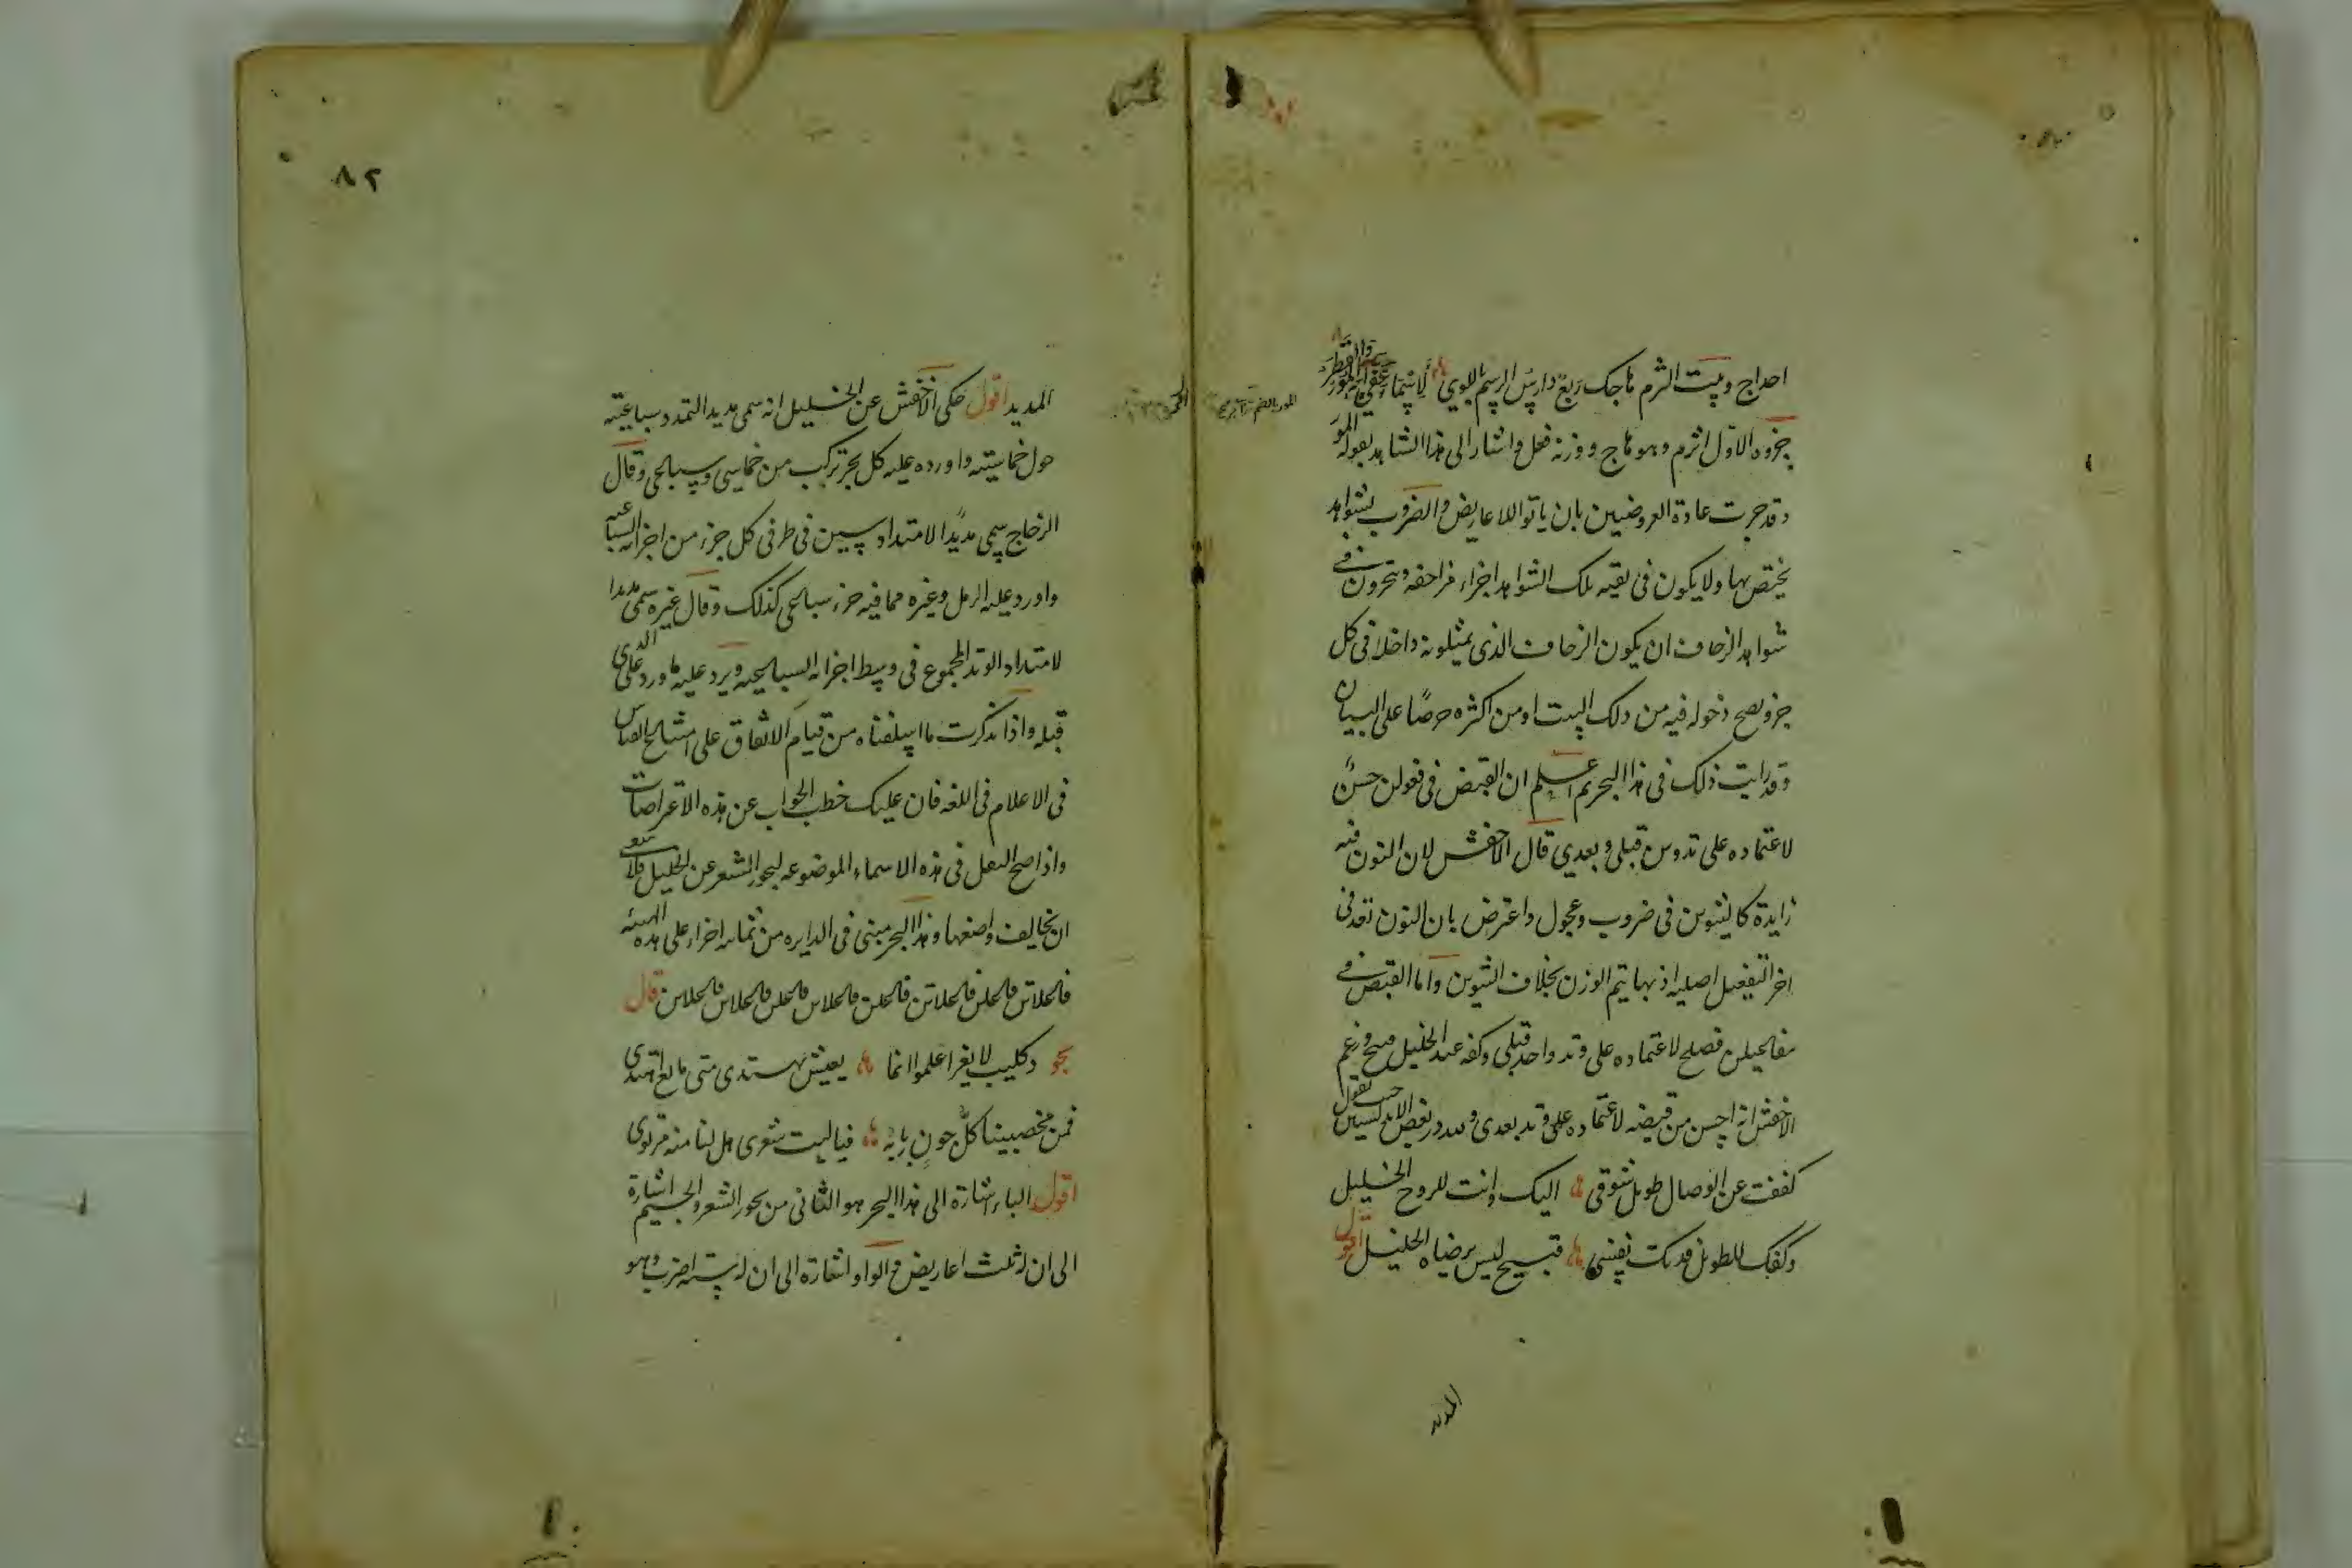 احداج وبيت الثرم هاجك ربع دارس الرسم باللوى لاسماء عفى آيه المور والقطر
جزوه الاول اثرم وهو هاج ووزنه فعل واشار الى هذا الشاهد بقوله المور
وقد جرت عادة العروضيين بان ياتوا للاعاريض والضروب بشواهد
يختص بها ولا يكون فى بقيه تلك الشواهد اجزاء مزاحفه ويتحرون فى
شواهد الزحاف ان يكون الزحاف الذى يمثلونه داخلا فى كل
جزو يصح دخوله فيه من ذلك البيت او من اكثره حرصًا على البيان
وقد رايت ذلك فى هذا البحر ثم اعلم ان القبض فى فعولن حسنٌ
لاعتماده على وتدين قبلى وبعدى قال الاخفش لان النون فيه
زايدة كالتنوين فى ضروب وعجول واعترض بان النون تعد فى
اخر التفعيل اصليه اذ بها يتم الوزن بخلاف التنوين واما القبض فى
مفاعيلن فصلح لاعتماده على وتد واحد قبلى وكفه عند الخليل قبيح وزعم
الاخفش انه احسن من قبضه لاعتماده على وتد بعدى ولله در بعض الاندلسيين حيث يقول
كففت عن الوصال طويل شوقى اليك وانت للروح الخليل
وكفك للطويل فدتك نفسى قبيح ليس يرضاه الخليل اقول
المديد
٨٢
المديد اقول حكى الاخفش عن الخليل انه سمى مديدا لتمدد سباعيته
حول خماسيته واورده عليه كل بحر تركب من خماسى وسباعى وقال
الزجاج سمى مديدًا لامتداد سببين فى طرفى كل جزء من اجزائه السباعيه
واورد عليه الرمل وغيره مما فيه جزء سباعى كذلك وقال غيره سمى مديدا
لامتداد الوتد المجموع فى وسط اجزائه السباعيه ويرد عليه ما ورد على الذى
قبله واذا تذكرت ما اسلفناه من قيام الاتفاق على امتناع القياس
فى الاعلام فى اللغه هان عليك خطب الجواب عن هذه الاعتراضات
واذا صح النقل فى هذه الاسماء الموضوعه لبحور الشعر عن الخليل فلا يتنبغى
ان يخالف واضعها وهذا البحر مبنى فى الدايره من ثمانيه اجزاء على هذه الهيئه
فاعلاتن فاعلن فاعلاتن فاعلن فاعلاتن فاعلن فاعلاتن فاعلن قال
بجو وكليب لا يغر اعلموا انما يعيش يهتدى متى ما يع اهتدى
فمن مخصبينا كلُّ جونِ ربابُه فياليت شعرى هل لنا منه مرتوى
اقول الباء اشارة الى هذا البحر هو الثانى من بحور الشعر والجيم اشارة
الى ان له ثلث اعاريض والواو اشارة الى ان له ستة اضرب وهو